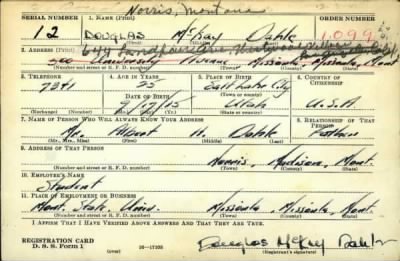 Norris, Montana
SERIAL NUMBER 1. NAME (Print) ORDER NUMBER
12 DOUGLAS McKay Dahle 1,099
(First) (Middle) (Last)
2. ADDRESS (Print)
500 University Avenue Missoula, Missoula, Mont
(Number and street or R. F. D. number) (Town) (County) (State)
3. TELEPHONE 4. AGE IN YEARS 5. PLACE OF BIRTH 6. COUNTRY OF CITIZENSHIP
7241 25 Salt Lake City
DATE OF BIRTH (Town or county)
9/17/15 Utah U.S.A.
(Exchange) (Number) (Mo.) (Day) (Yr.) (State or country)
7. NAME OF PERSON WHO WILL ALWAYS KNOW YOUR ADDRESS 8. RELATIONSHIP OF THAT PERSON
Mr. Albert H. Dahle Father
(Mr., Mrs., Miss) (First) (Middle) (Last)
9. ADDRESS OF THAT PERSON
Norris, Madison, Mont.
(Number and street or R. F. D. number) (Town) (County) (State)
10. EMPLOYER'S NAME
Student
11. PLACE OF EMPLOYMENT OR BUSINESS
Mont. State Univ. Missoula, Missoula, Mont
(Number and street or R. F. D. number) (Town) (County) (State)
I AFFIRM THAT I HAVE VERIFIED ABOVE ANSWERS AND THAT THEY ARE TRUE.
REGISTRATION CARD
D. S. S. Form 1 (over) 16-17105 Douglas McKay Dahle
(Registrant's signature)